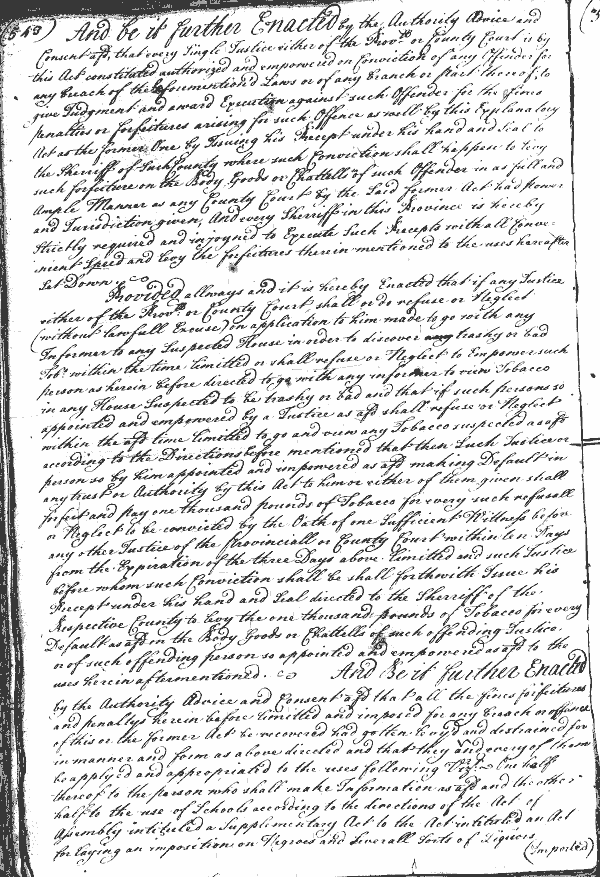 (343) And be it further Enacted by the Authority Advice and
Consent afd, that every Single Justice either of the Provll or County Court is by
this Act constituted authorized and empowered on Conviction of any Offender for
any breach of the aforementioned Laws or of any branch or part thereof, to
give Judgment and award Execution against such Offender for the Fines
penalties or forfeitures arising for such Offence as well by this Explanatory
Act as the former One by Issuing his Precept under his hand and Seal to
the Sherriff of Such County where such Conviction shall happen to Levy
such forfeiture on the Body Goods or Chattells of such Offender in as full and
Ample Manner as any County Court by the Said former Act had power
and Jurisdiction given; And every Sherriff in this Province is hereby
Strictly required and injoyned to Execute Such Precepts with all Conve-
nient Speed and Levy the forfeitures therein mentioned to the uses hereafter
Set Down;
Provided allways and it is hereby Enacted that if any Justice
either of the Provll or County Court, shall or do refuse or Neglect
(without lawfull Excuse) on application to him made to go with any
Informer to any Suspected House in order to discover any trashy or bad
Tobo within the time limitted or shall refuse or Neglect to Empower such
person as herein before directed to go with any informer to view Tobacco
in any House Suspected to be trashy or bad and that if such persons so
appointed and empowered by a Justice as afd shall refuse or Neglect
within the afd time limitted to go and view any Tobacco suspected as afd
according to the Directions before mentioned that then Such Justice or
person so by him appointed and impowered as afd making Default in
any trust or Authority by this Act to him or either of them given shall
forfeit and pay one thousand pounds of Tobacco for every such refusall
or Neglect to be convicted by the Oath of one Sufficient Witness before
any other Justice of the Provinciall or County Court within ten Days
from the Expiration of the three Days above limitted and such Justice
before whom such Conviction shall be shall forthwith Issue his
Precept under his hand and Seal directed to the Sherriff of the
Respective County to Levy the one thousand pounds of Tobacco for every
Default as afd on the Body Goods or Chattells of such offending Justice
or of such offending person so appointed and empowered as afd to the
uses herein aftermentioned. And Be it further Enacted
by the Authority Advice and Consent afd that all the fines forfeitures
and penaltys herein before limitted and imposed for any breach or offence
of this or the former Act be recovered had gotten levyd and distrained for
in manner and form as above directed and that they and every of them
be applyed and appropriated to the uses following Vizt One half
thereof to the person who shall make Information as afd and the other
half to the use of Schools according to the directions of the Act of
Assembly intituled a Supplimentary Act to the Act intituled an Act
for laying an imposition on Negroes and Severall Sorts of Liquors
(Imported)